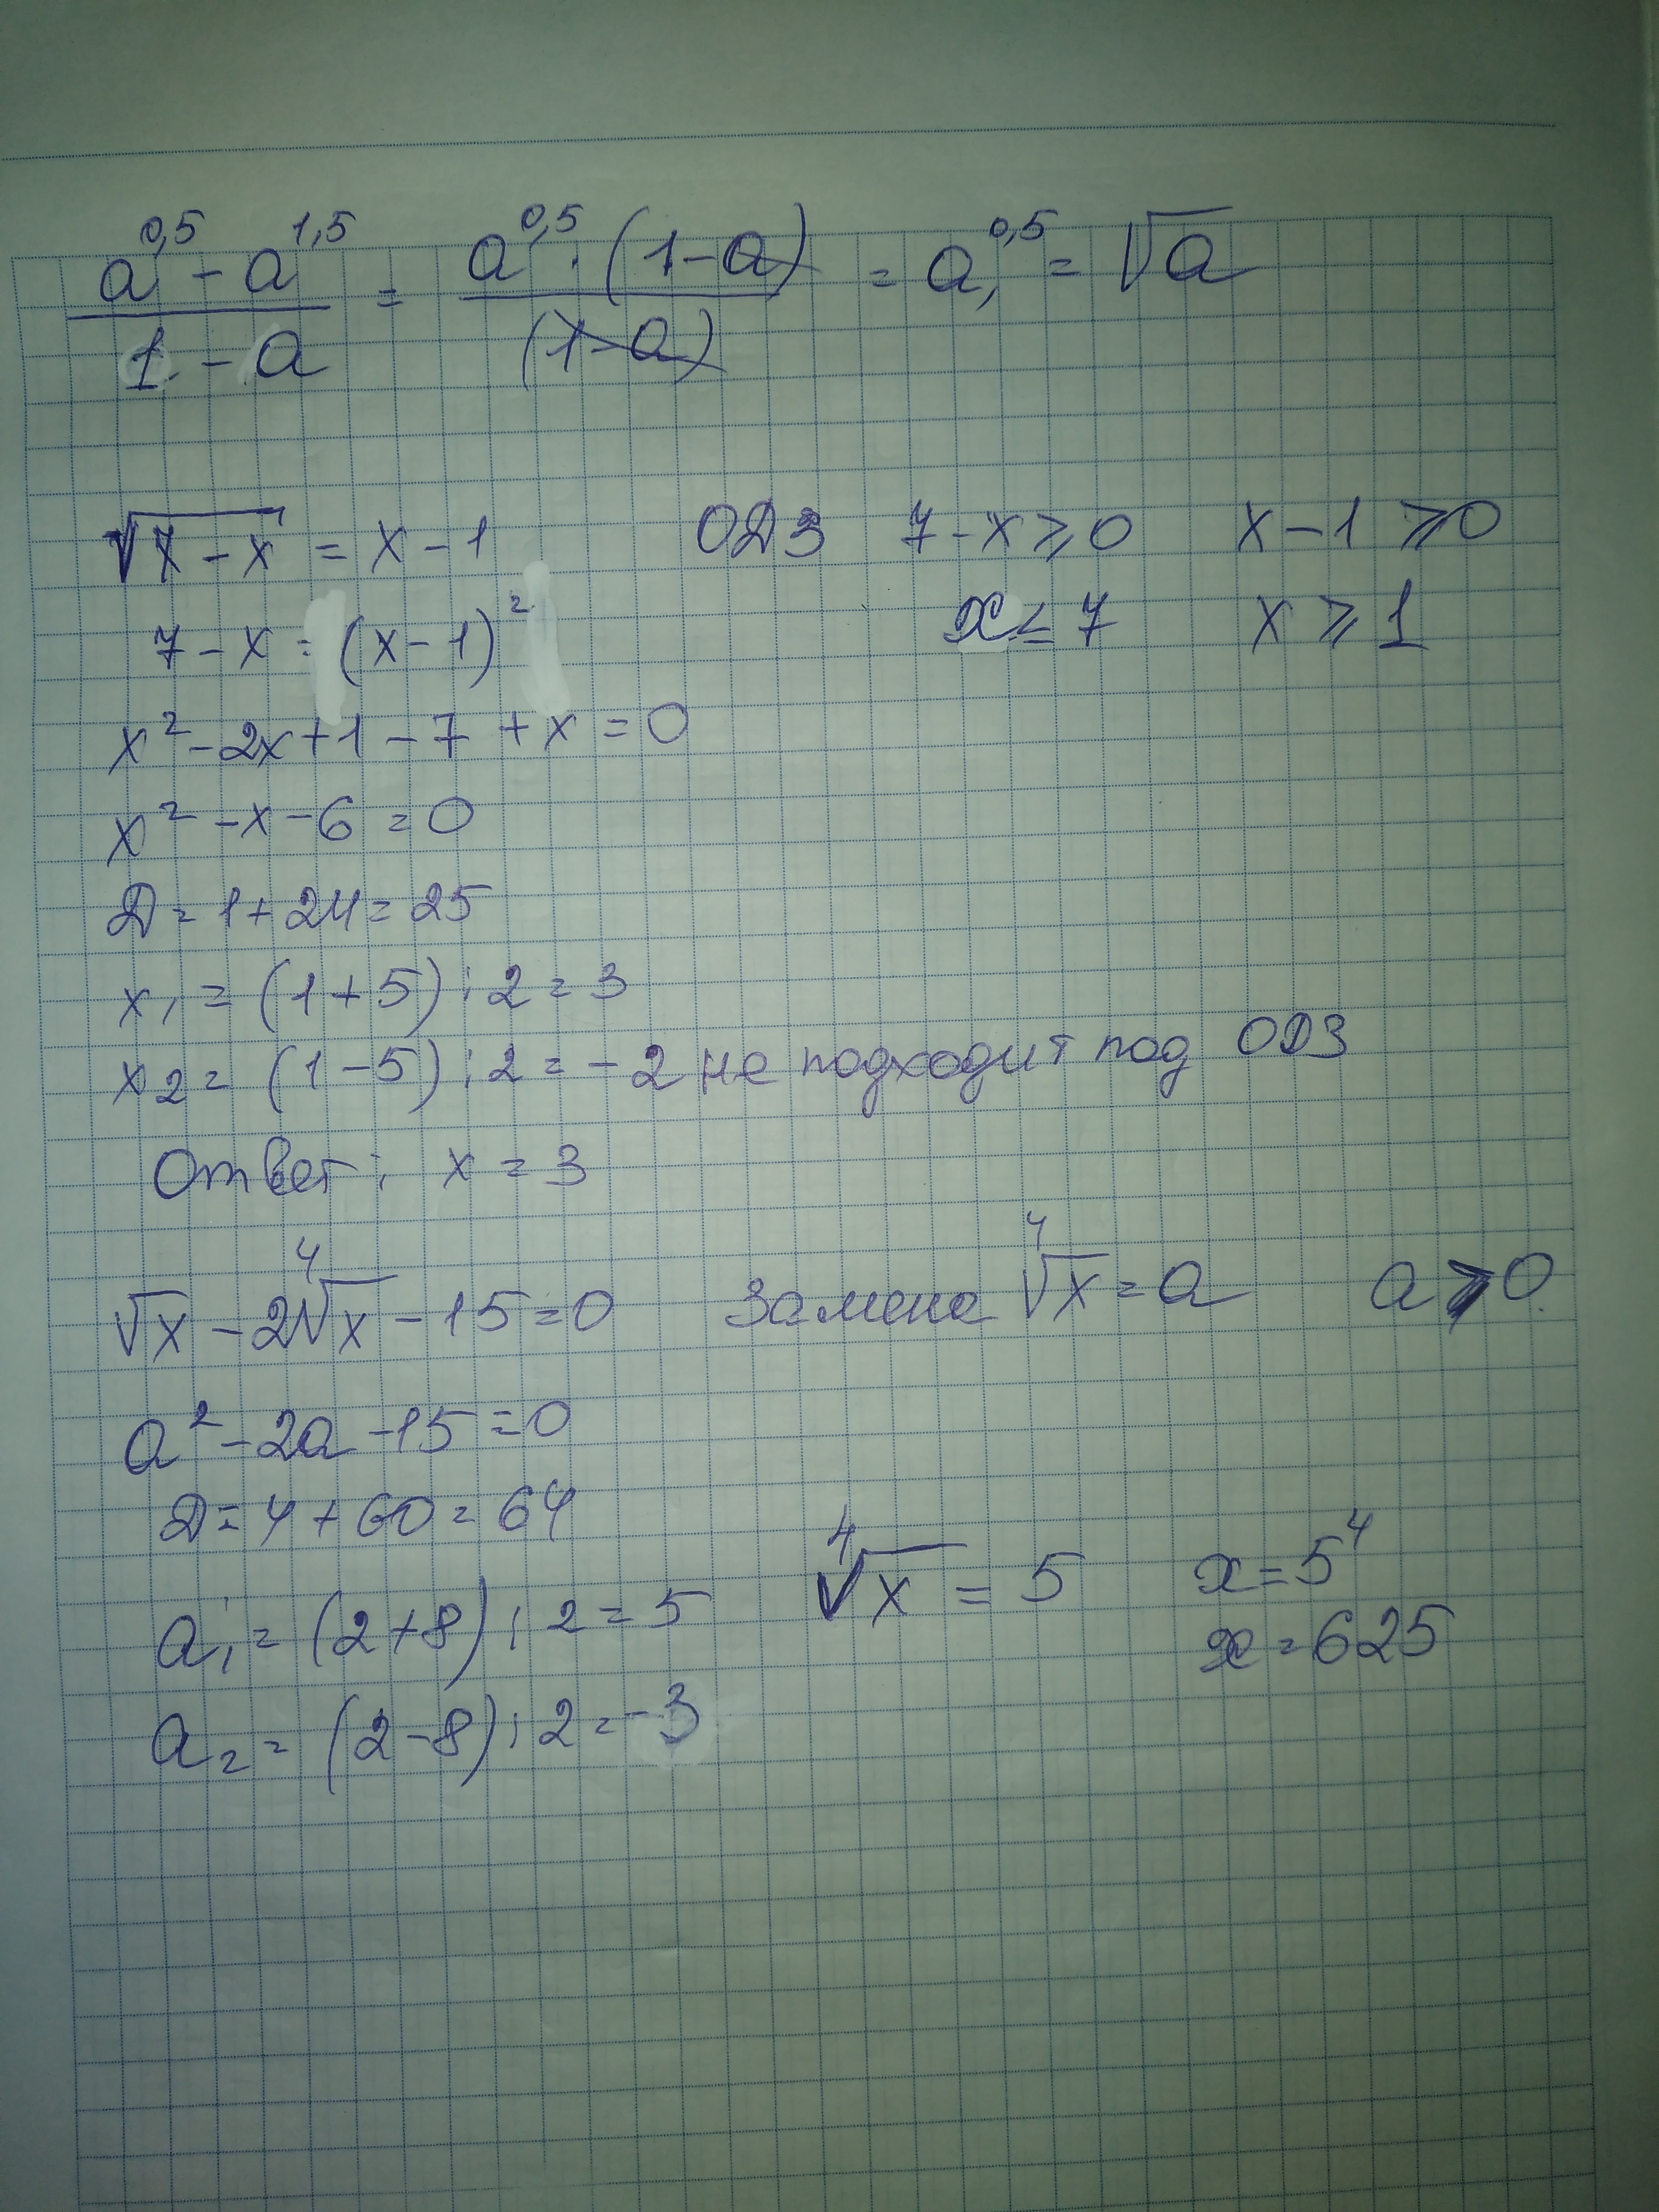 (a^0,5 - a^1,5)/(1 - a) = (a^0,5 · (1 - a))/((1 - a)) = a^0,5 = √a
√(7 - x) = x - 1 ОДЗ 7 - x ⩾ 0 x - 1 ⩾ 0
7 - x = (x - 1)² x ≤ 7 x ⩾ 1
x² - 2x + 1 - 7 + x = 0
x² - x - 6 = 0
D = 1 + 24 = 25
x₁ = (1 + 5) : 2 = 3
x₂ = (1 - 5) : 2 = -2 не подходит под ОДЗ
Ответ: x = 3
√x - 2⁴√x - 15 = 0 Замена ⁴√x = a a ⩾ 0
a² - 2a - 15 = 0
D = 4 + 60 = 64
a₁ = (2 + 8) : 2 = 5 ⁴√x = 5 x = 5⁴
x = 625
a₂ = (2 - 8) : 2 = -3